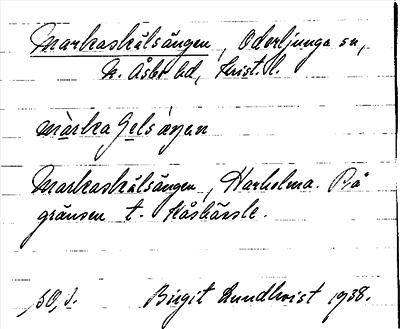 Markaskälsängen, Oderljunga sn,
N. Åsbo hd, Krist. l.
màrka gelsàŋan
Markaskälsängen, Harholma. På
gränsen t.
50, J. Birgit Lundkvist 1938.